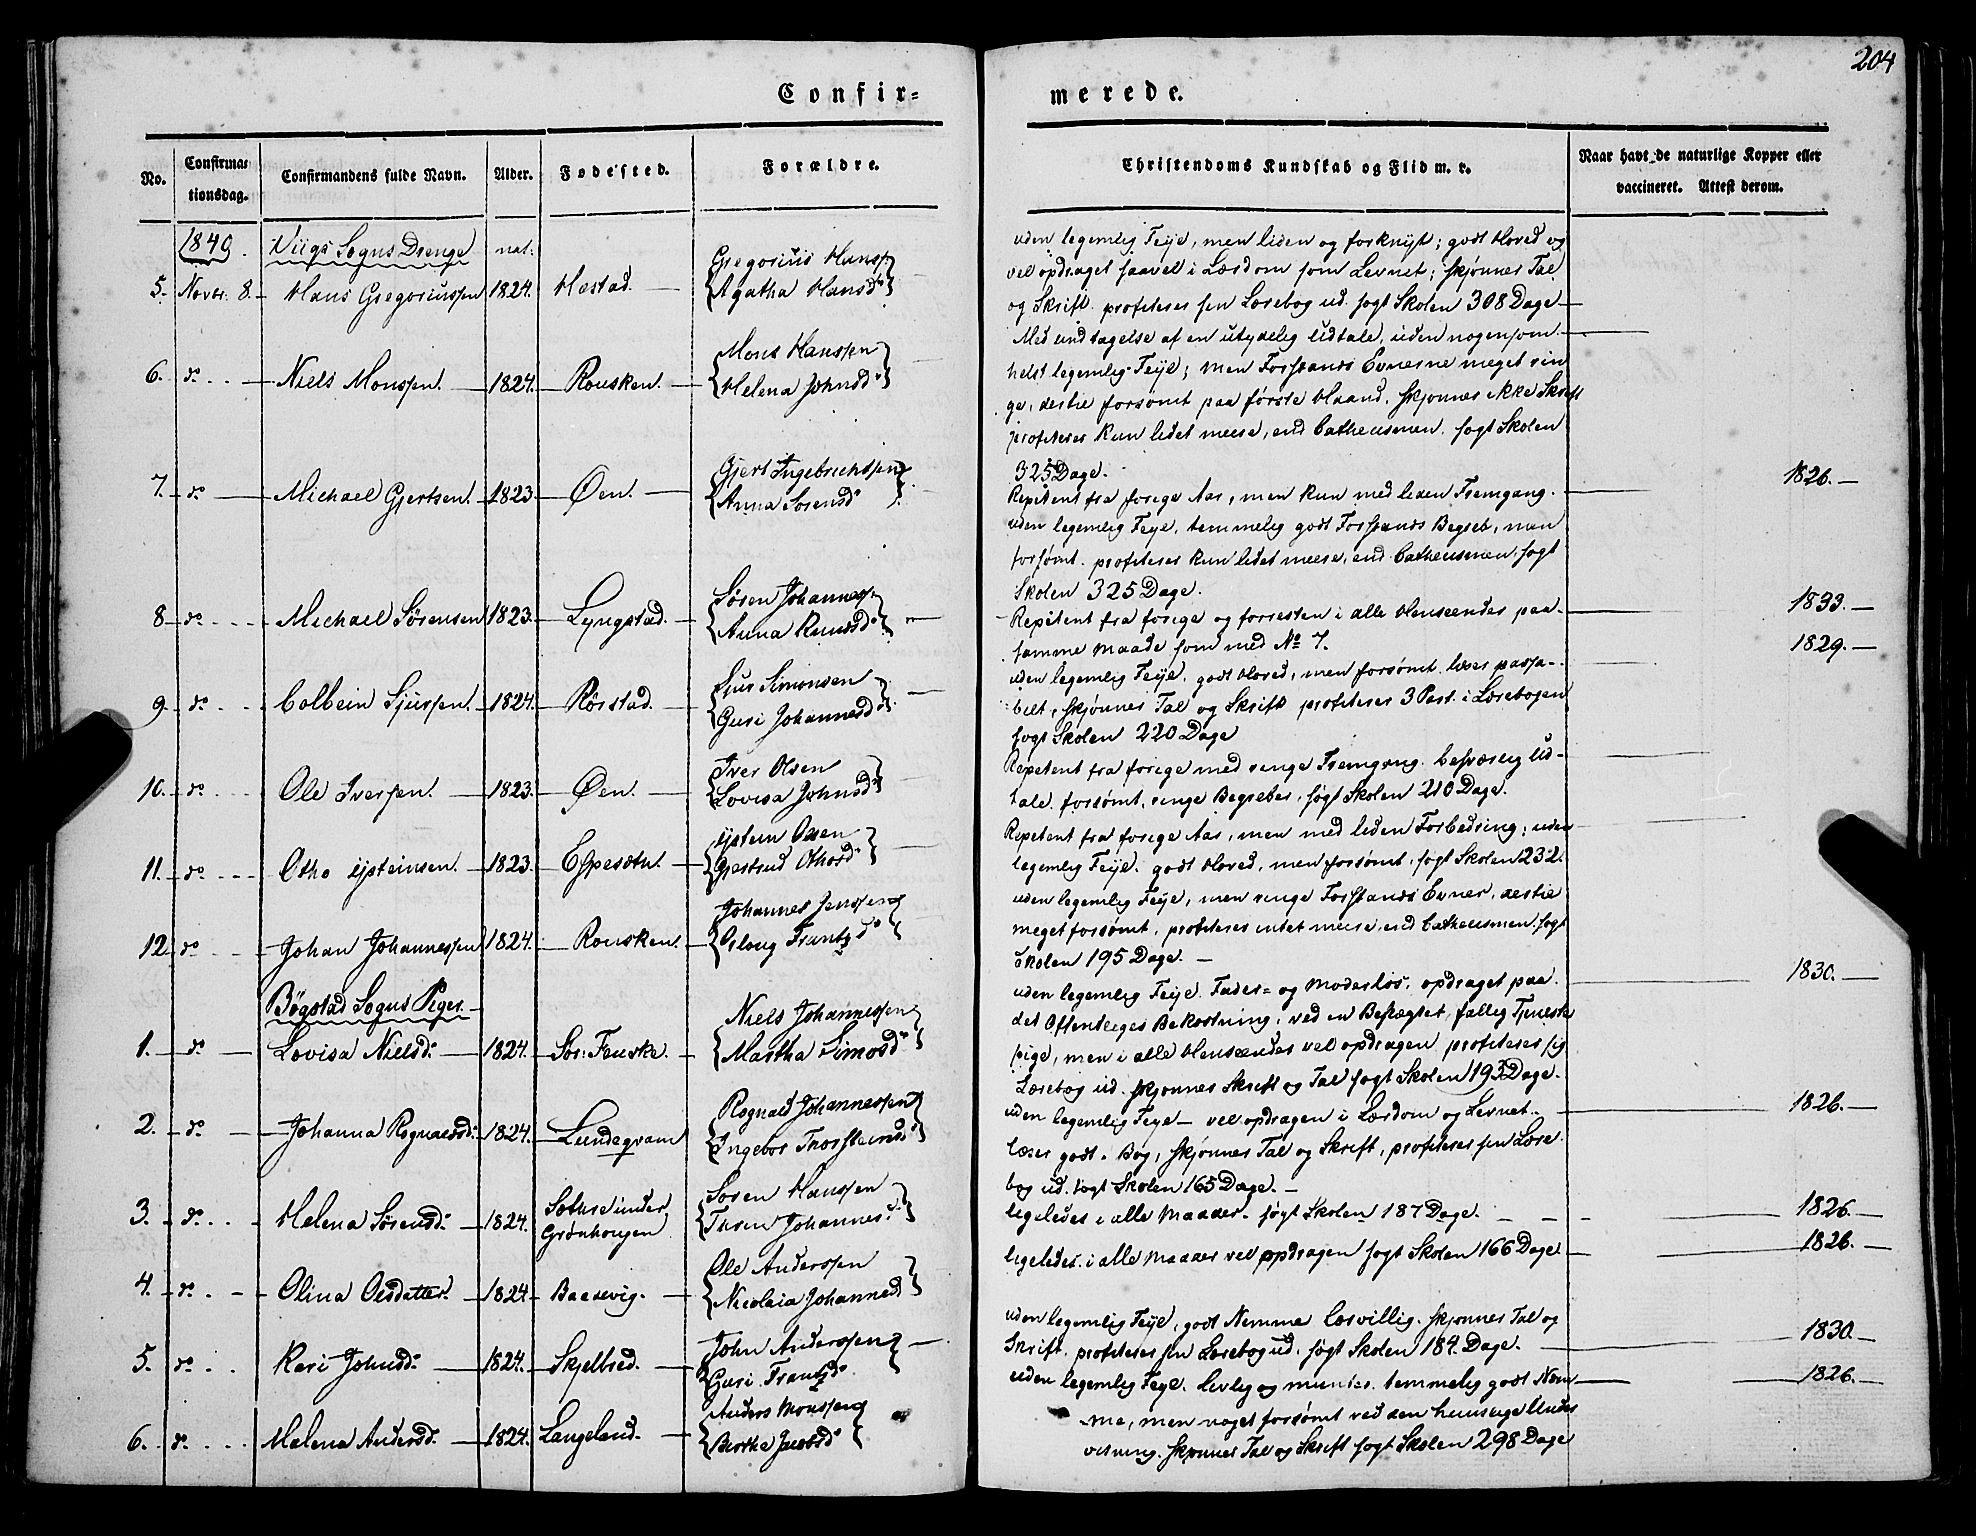 204
Confir= merede.
No. Confirmationsdag. Confirmandens fulde Navn. Alder. Fødested. Forældre. Christendoms Kundskab og Flid m. v. Naar havt de naturlige Kopper eller vaccineret. Attest derom.
1840. Viigs Sogns Drenge nat:
5. Novbr: 8. Hans Gregoriussen 1824. Hæstad. Gregorius Hanss.
Agatha Hansd.
uden legemlig Feyl, men liden og forknyt; godt Hoved og
vel opdraget saavel i Lærdom som Levnet; skjønner Tal
og Skrift. profiterer sin Lærebog ud. søgt Skolen 308 Dage
6. do Niels Monssen. 1824. Rousken. Mons Hanssen
Helena Johnsd.
Med undtagelse af en utydelig Udtale, uden nogensom-
helst legemlig Feyl; men Forstands Evnerne meget rin
ge, destie forsømt paa første Haand. skjønner ikke Skrift
profiterer kun lidet meere, end Cathecismen. søgt Skolen
325 Dage.
7. do Michael Gjertsen. 1823. Øen. Gjert Ingebrichtsen
Anna Sørensd.
Repitent fra forige Aar, men kun med liden Fremgang.
uden legemlig Feyl, temmelig godt Forstands Begreb, men
forsømt. profiterer kun lidet meere, end Cathecismen, søgt
Skolen 325 Dage.
1826.
8 do Michael Sørensen 1823. Lyngstad. Søren Johanness.
Anna Knudsd.
Repitent fra forige og forresten i alle Henseender paa
samme Maade som med No 7.
1833.
9 do Colbein Sjurssen. 1824. Rørstad. Sjur Simonsen
Guri Johannesd.
uden legemlig Feyl, godt Hoved, men forsømt. læser passa-
belt, skjønner Tal og Skrift profiterer 3 Part. i Lærebogen
søgt Skolen 220 Dage
1829.
10. do Ole Iverssen. 1823. Øen. Iver Olsen
Lovisa Johnsd.
Repetent fra forige med ringe Fremgang. besværlig Ud-
tale. forsømt, ringe Begreber, søgt Skolen 210 Dage.
11. do Otho Ejsteinsen. 1823. Espesæth. Ejstein Olsen
Gjertrud Othosd.
Repetent fra forige Aar, men med liden Forbedring; uden
legemlig Feyl. godt Hoved, men forsømt, søgt Skolen 232.
12 do Johan Johannessen 1824. Rousken. Johannes Jenssen
Frantzd.
uden legemlig Feyl, men ringe Forstands Evner, destie
meget forsømt, profiterer intet meere, end Cathecismen. søgt
Skolen 195 Dage.
Bøgstad Sogns Piger.
1. do Lovisa Nielsd. 1824. Sør: Fenske. Niels Johannessen
Martha Simosd.
uden legemlig Feyl. Fader= og Moderløs, opdraget paa
det Offentliges Bekostning, ved en Beslægtet, fattig Tjeneste
pige, men i alle Henseender vel opdragen profiterer sig
Lærebog ud. skjønner Skrift og Tal søgt Skolen 193 Dage.
1830.
2. do Johanna Rognaldsd. 1824. Lundeqvam Rognald Johannessen
Ingebor Thorsteinsd.
uden legemlig Feyl vel opdragen i Lærdom og Levnet.
læser godt i Bog, skjønner Tal og Skrift, profiterer sin Lære
bog ud. søgt Skolen 165 Dage.
1826.
3. do Helena Sørensd. 1824. Sætre under
Grønhougen Søren Hanssen
Thoren Johannesd.
ligeledes i alle Maader. søgt Skolen 187 Dage.
1826.
4. do Olina Olsdatter. 1824. Baardvig. Ole Anderssen
Nicolaia Johannesd
ligeledes i alle Maader vel opdragen søgt Skolen 166 Dage
1826.
5. do Kari Johnsd. 1824. Skjelbred. John Anderssen
Guri Frantzd.
uden legemlig Feyl, godt Nemme Lærvillig. skjønner Tal og
Skrift. profiterer sin Lærebog ud. søgt Skolen 184 Dage.
1830
6. do Malena Andersd. 1824. Langeland. Anders Monssen
Berthe Jacobsd.
uden legemlig Feyl. livlig og munter. temmelig godt Nem
me, men noget forsømt ved den huuslige Under
viisning. skjønner Tal og Skrift søgt Skolen 298 Dage
1826.